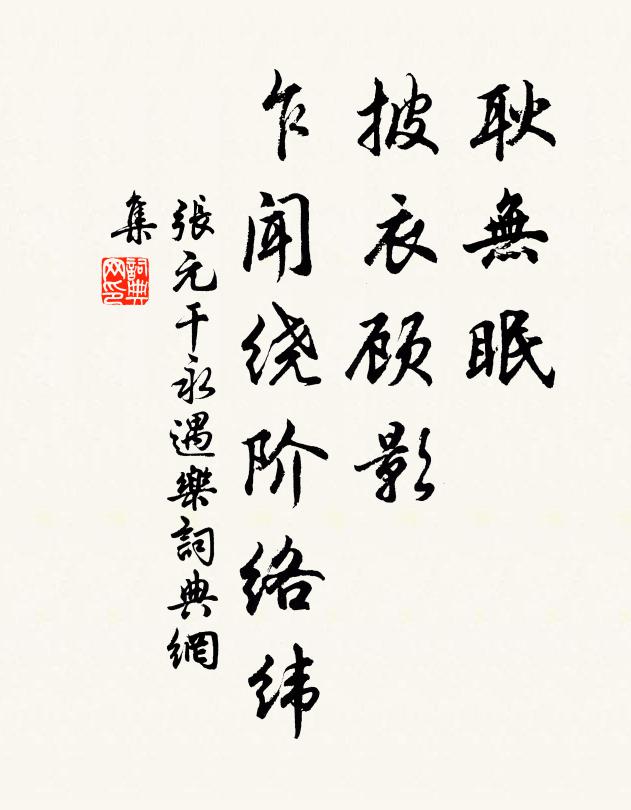 耿無眠
披衣顾影
乍闻绕阶络纬
張元干永遇樂詞典網
集
詞典
网印